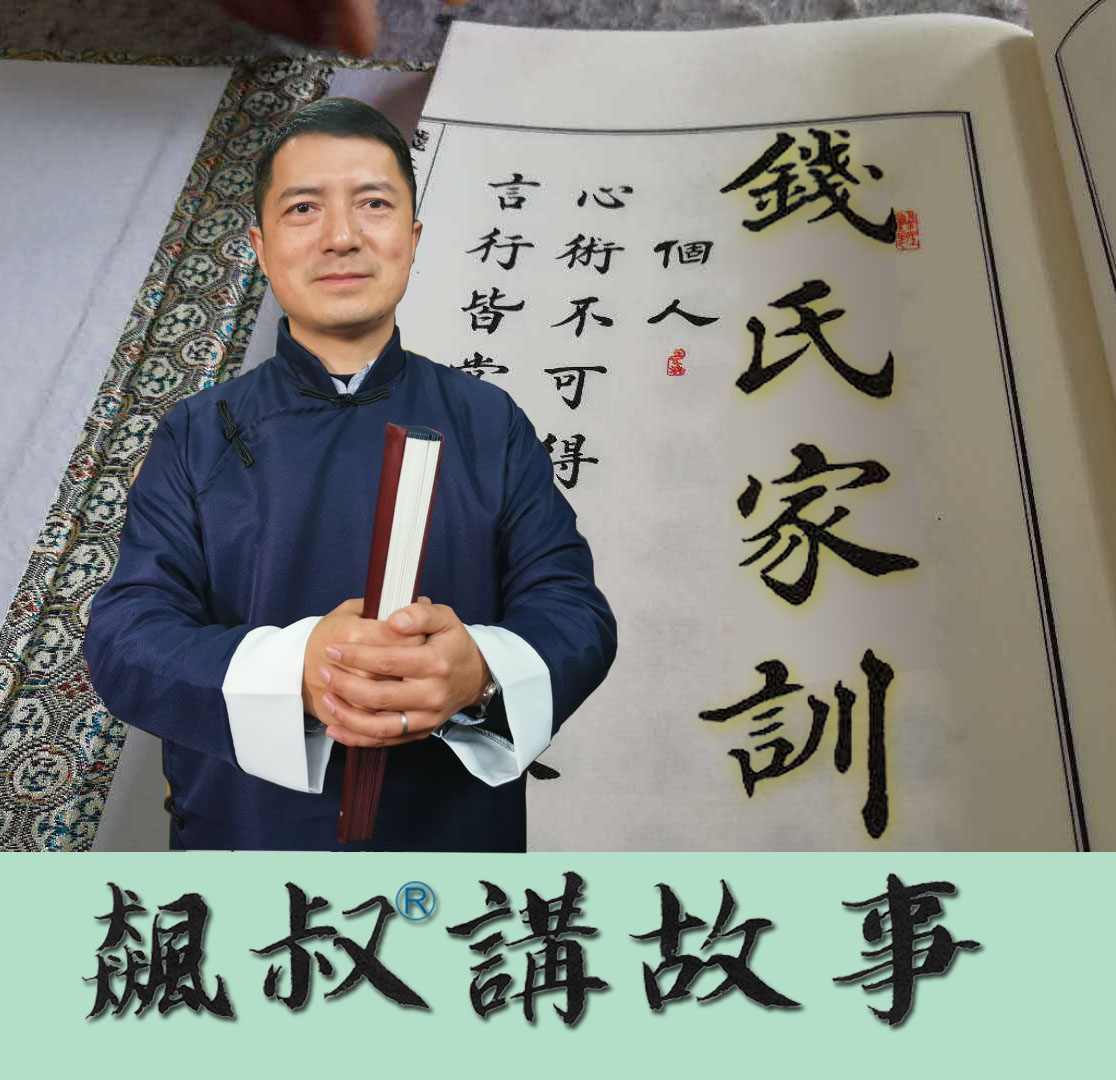 錢氏家訓
個人
心術不可得
言行皆當
飆叔®講故事